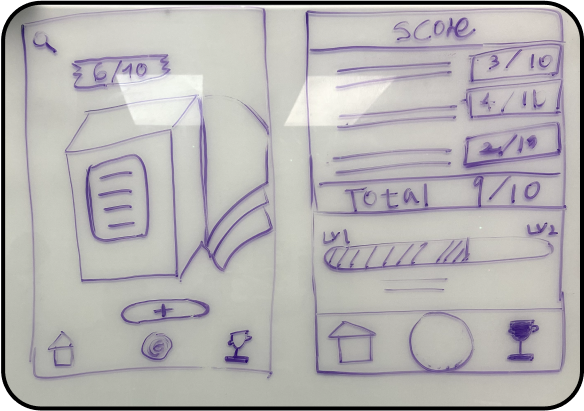 6/10
+
Score
3/10
Total 9/10
LV1 LV2